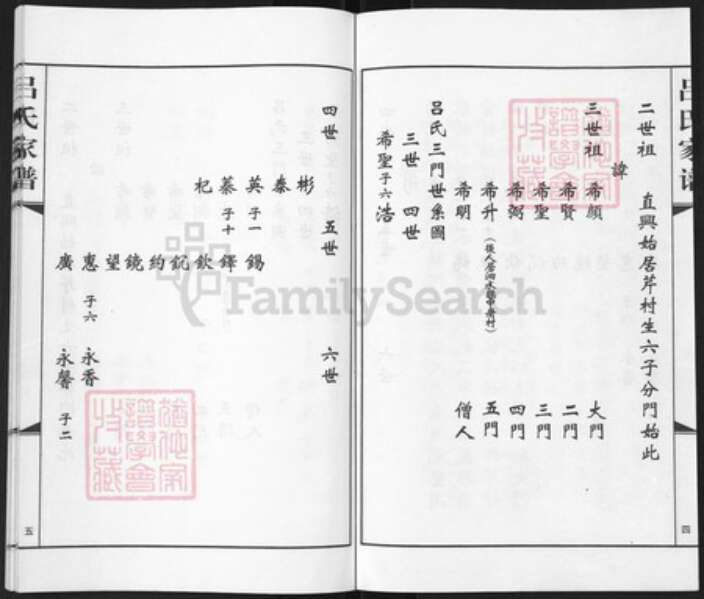 呂氏家譜
四
二世祖 直興始居芹村生六子分門始此
諱
三世祖 希顏 大門
希賢 二門
希聖 三門
希弼 四門
希升 (後人居泗水縣中 村) 五門
希明 僧人
呂氏三門世系圖
三世 四世
希聖 子六 浩
四世 五世 六世
彬
泰
英 子一 錫
蓁 子十 鐸
杞 欽
約
鏡
望
惠 子六 永香
廣 永馨 子二
呂氏家譜
五
FamilySearch